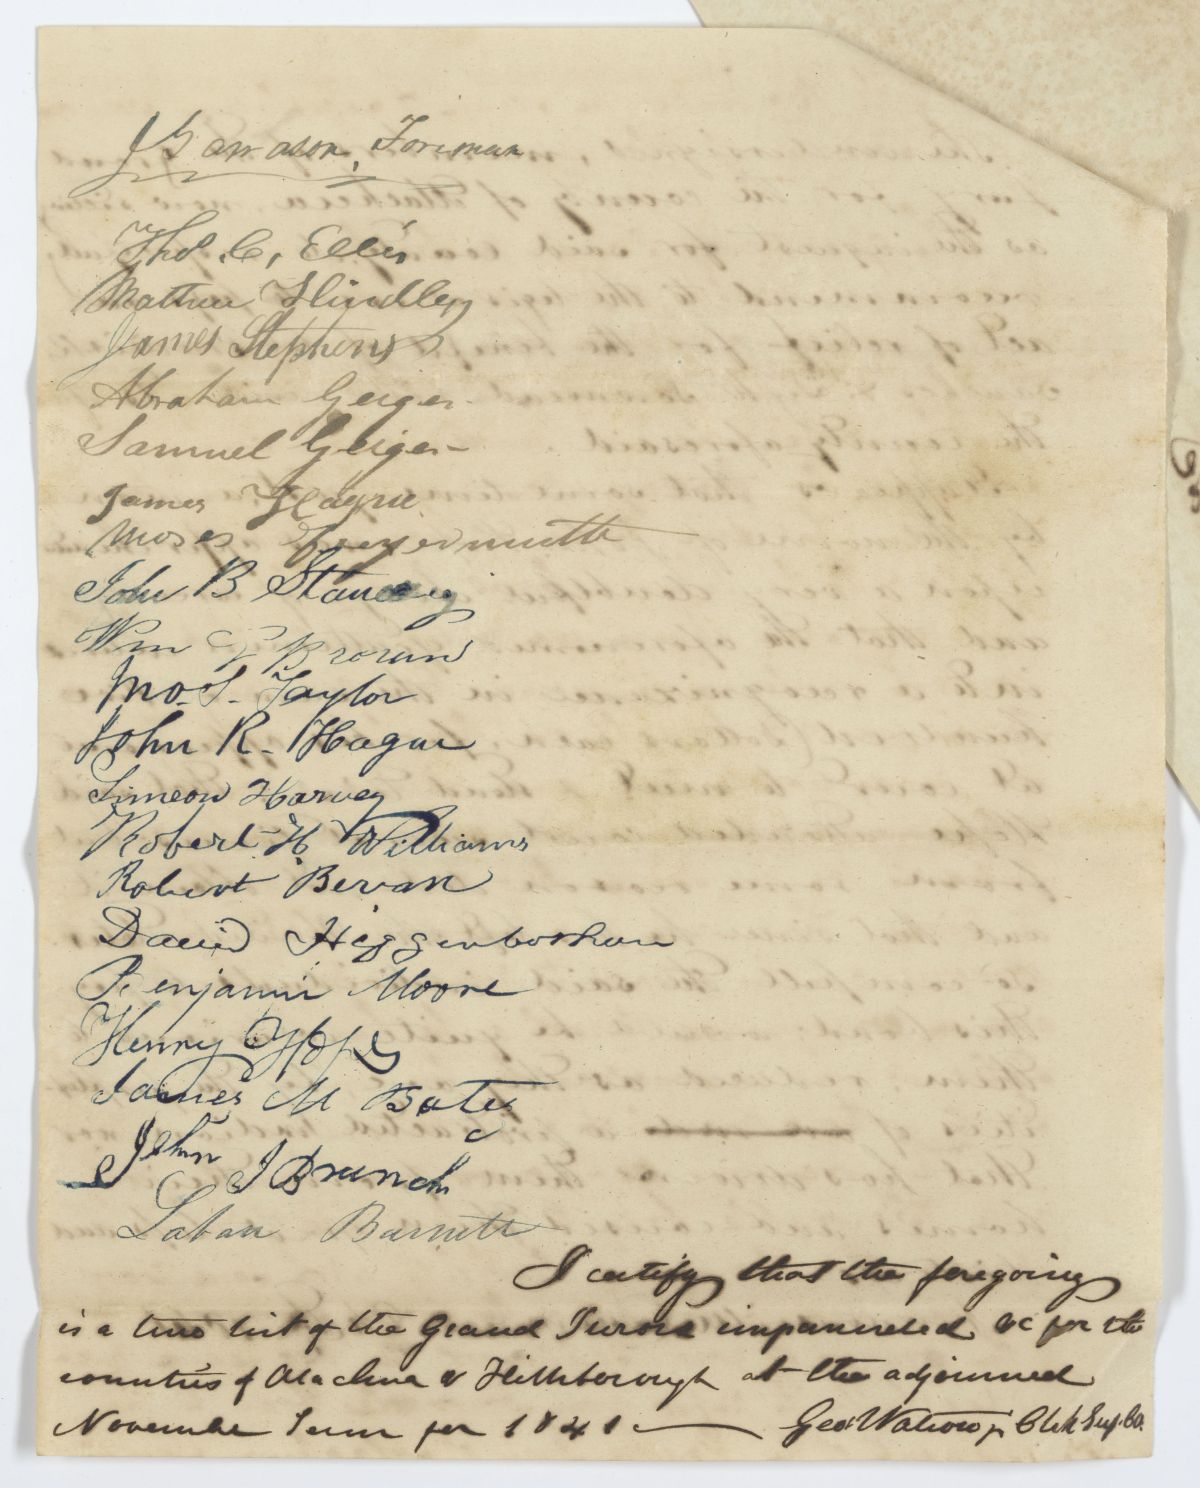 Foreman
Thos. C, Ellis
Mathew Hindley
James Stephens
Abraham Geiger
Samuel Geiger
James Hague
Moses
John B Standley
Wm Brown
Jno. S. Taylor
John R. Hague
Simeon Harvey
Robert H Williams
Robert Bevan
David Higgenbotham
Benjamin Moore
Henry
James M Bates
John J Branch
Laban Barnett
I certify that the foregoing
is a true list of the Grand Jurors impanneled &c for the
counties of Alachua & Hillsborough at the adjourned
November Term for 1841 Geo. Watson jr Clk Sup. Co.